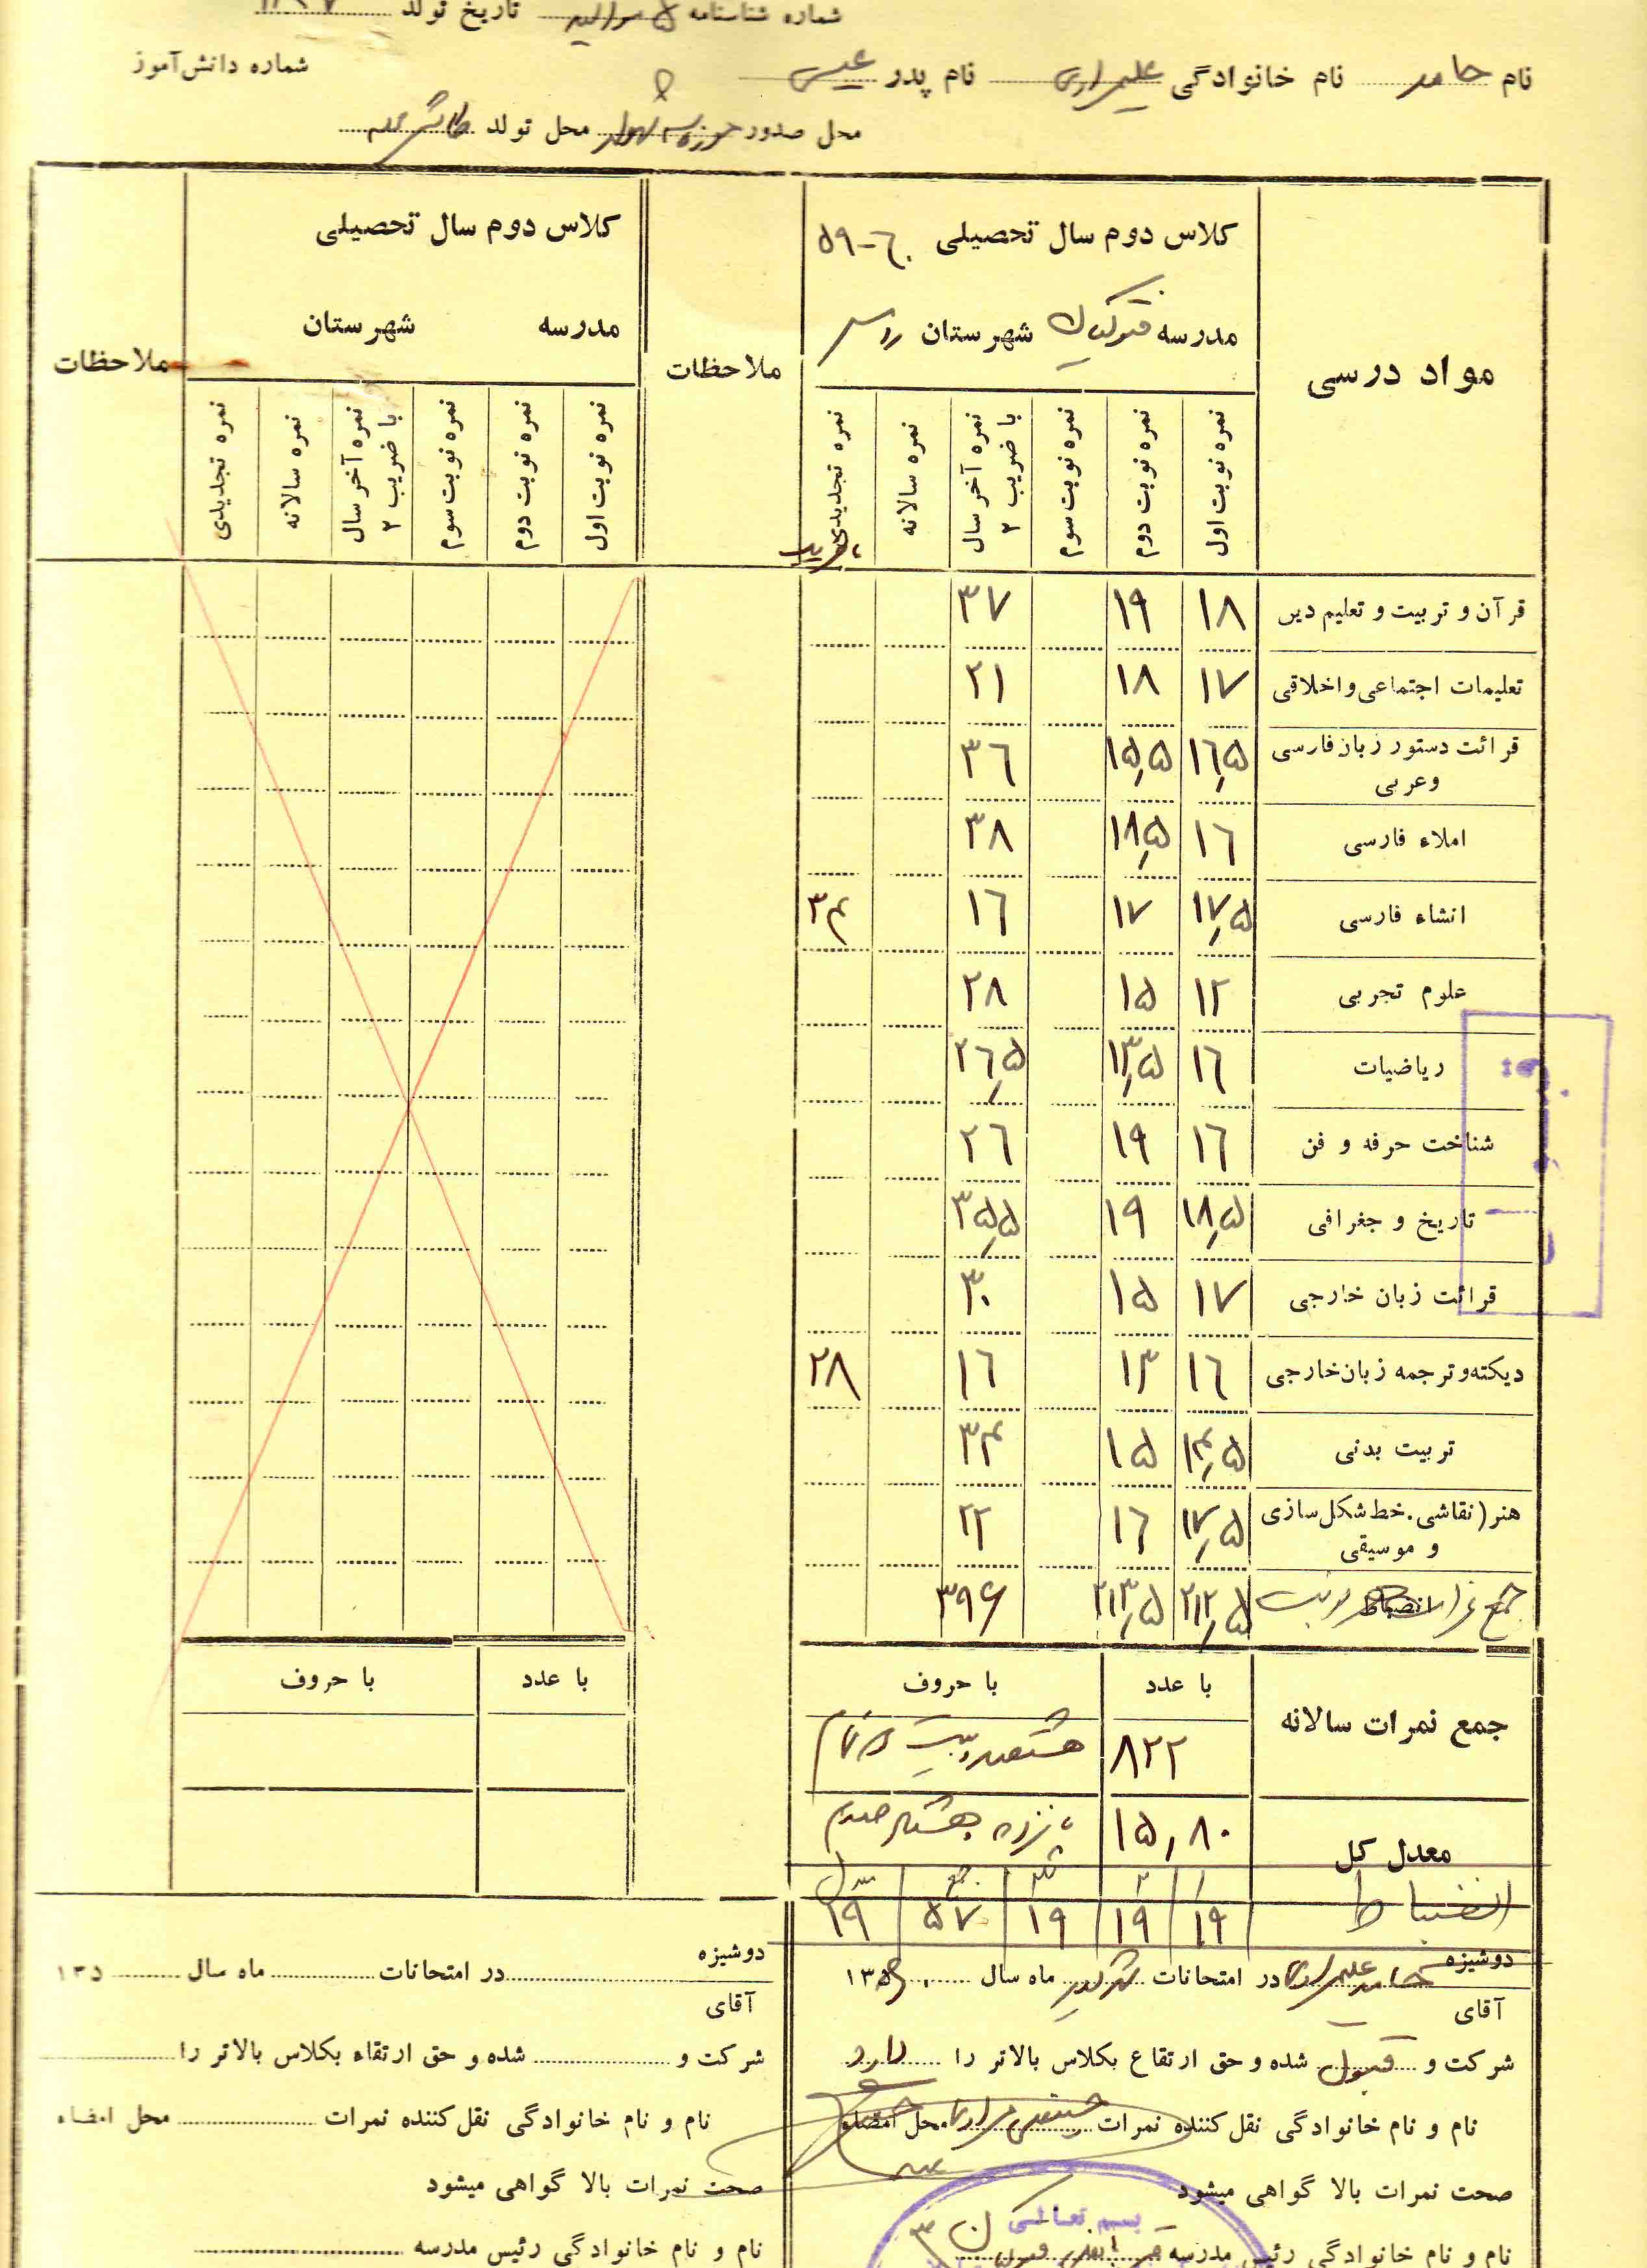 شماره شناسنامه ۵ تاریخ تولد
نام حامد نام خانوادگی علیمرادی نام پدر عیسی شماره دانش‌آموز
محل صدور محل تولد
مواد درسی
کلاس دوم سال تحصیلی ۶۰-۵۹
مدرسه شهرستان
نمره نوبت اول نمره نوبت دوم نمره نوبت سوم نمره آخر سال با ضریب ۲ نمره سالانه نمره تجدیدی
ملاحظات
کلاس دوم سال تحصیلی
مدرسه شهرستان
نمره نوبت اول نمره نوبت دوم نمره نوبت سوم نمره آخر سال با ضریب ۲ نمره سالانه نمره تجدیدی
ملاحظات
قرآن و تربیت و تعلیم دین ۱۸ ۱۹ ۳۷
تعلیمات اجتماعی و اخلاقی ۱۷ ۱۸ ۲۱
قرائت دستور زبان فارسی و عربی ۱۶٫۵ ۱۵٫۵ ۳۶
املاء فارسی ۱۶ ۱۸٫۵ ۳۸
انشاء فارسی ۱۷٫۵ ۱۷ ۱۶ ۳۴
علوم تجربی ۱۲ ۱۵ ۲۸
ریاضیات ۱۶ ۱۳٫۵ ۲۶٫۵
شناخت حرفه و فن ۱۶ ۱۹ ۲۶
تاریخ و جغرافی ۱۸٫۵ ۱۹ ۳۵٫۵
قرائت زبان خارجی ۱۷ ۱۵ ۳۰
دیکته و ترجمه زبان خارجی ۱۶ ۱۳ ۱۶ ۲۸
تربیت بدنی ۱۴٫۵ ۱۵ ۳۴
هنر (نقاشی. خط شکل سازی و موسیقی ۱۷٫۵ ۱۶ ۲۲
جمع نمرات انضباط ۲۱۲٫۵ ۲۱۳٫۵ ۳۹۶
با عدد با حروف با عدد با حروف
جمع نمرات سالانه ۸۲۲ هشتصد و بیست و دو تمام
معدل کل ۱۵٫۸۰ پانزده و هشتاد صدم
۱ ۲ ثلث جمع
انضباط ۱۹ ۱۹ ۱۹ ۵۷ ۱۹
دوشیزه
آقای حامد علیمرادی در امتحانات ماه سال ۱۳۵
شرکت و قبول شده و حق ارتقاع بکلاس بالاتر را دارد
نام و نام خانوادگی نقل کننده نمرات محل امضاء
صحت نمرات بالا گواهی میشود
نام و نام خانوادگی رئیس مدرسه
بسم تعالی
دوشیزه
آقای در امتحانات ماه سال ۱۳۵
شرکت و شده و حق ارتقاء بکلاس بالاتر را
نام و نام خانوادگی نقل کننده نمرات محل امضاء
صحت نمرات بالا گواهی میشود
نام و نام خانوادگی رئیس مدرسه